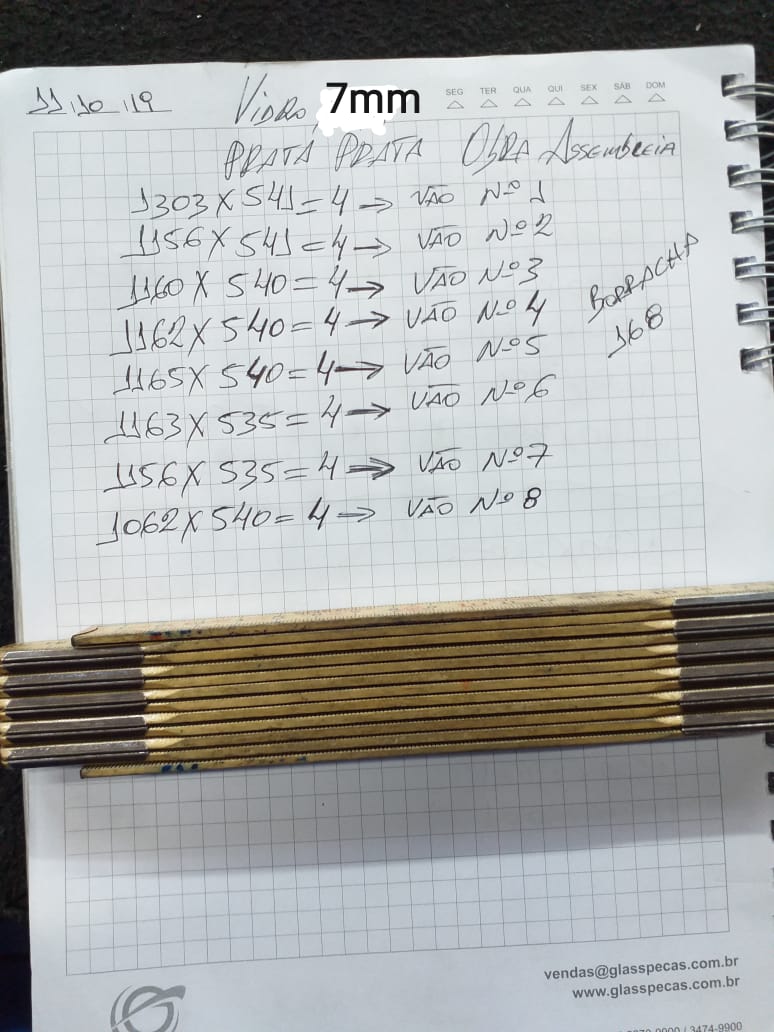 11.10.19
Vidro 7mm
SEG TER QUA QUI SEX SÁB DOM
PRATA PRATA OBRA ASSEMBLEIA
1303 X 541 = 4 → VÃO Nº 1
1156 X 541 = 4 → VÃO Nº 2
1160 X 540 = 4 → VÃO Nº 3
1162 X 540 = 4 → VÃO Nº 4
1165 X 540 = 4 → VÃO Nº 5
1163 X 535 = 4 → VÃO Nº 6
1156 X 535 = 4 → VÃO Nº 7
1062 X 540 = 4 → VÃO Nº 8
BORRACHA
168
vendas@glasspecas.com.br
www.glasspecas.com.br
/ 3474-9900